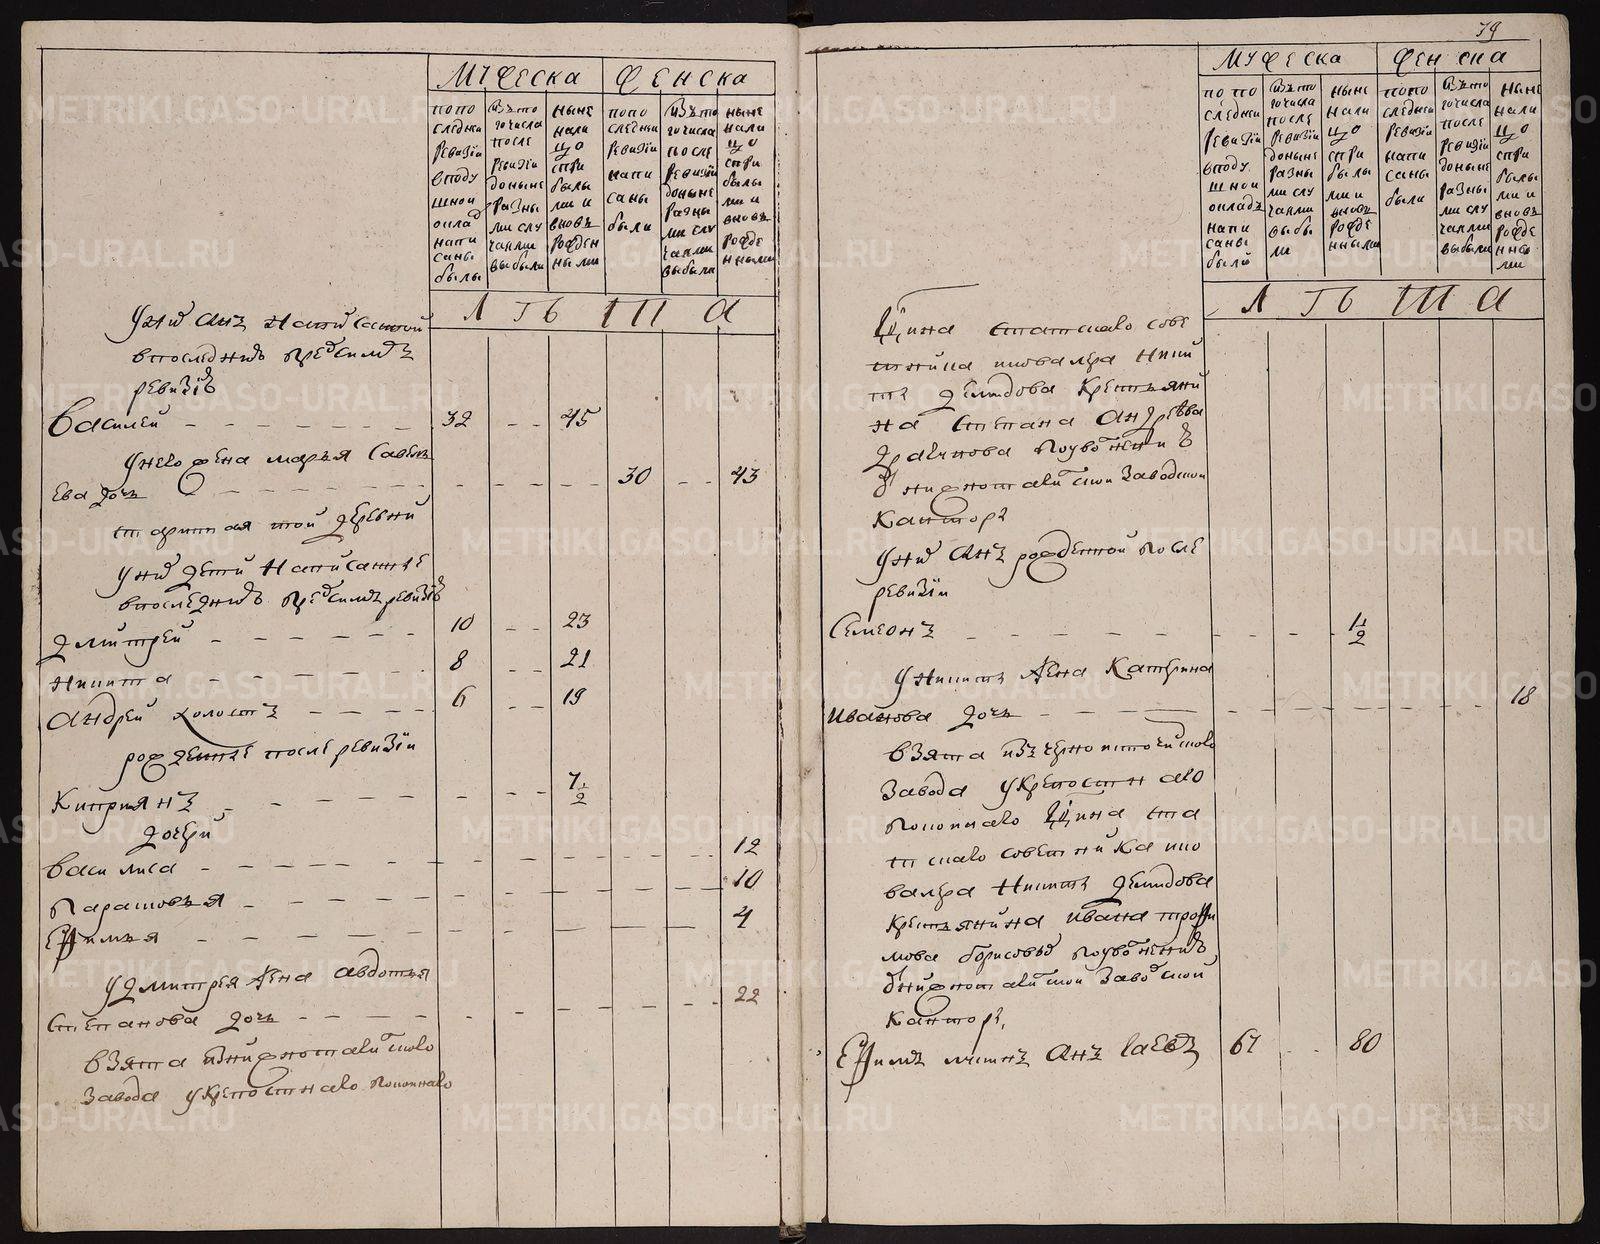 79
мужеска женска
по по следней ревизїи в подушной окладъ написаны были
изъ того числа после ревизїи до ныне разными случаями выбыли
ныне налицо с прибылыми и вновь рожденными
по последней ревизїи написаны были
изъ того числа после ревизїи до ныне разными случаями выбыли
ныне налицо с прибылыми и вновь рожденными
лѣта
у нихъ сынъ написанной
в последней пред симъ
ревизїи
Василей 32 45
у него жена марья савель
ева дочь 30 43
старинная той деревни
у нихъ дети написанные
в последней пред симъ ревизїи
дмитрей 10 23
никита 8 21
андрей холостъ 6 19
рожденные после ревизїи
Киприянъ 7 1/2
дочери
василиса 12
парасковья 10
Ефимья 4
у дмитрея жена авдотья
степанова дочь 22
взята из нижнотагилского
завода у крепостнаго покойнаго
мужеска женска
по последней ревизїи в подушной окладъ написаны были
изъ того числа после ревизїи до ныне разными случаями выбыли
ныне налицо с прибылыми и вновь рожденными
по последней ревизїи написаны были
изъ того числа после ревизїи до ныне разными случаями выбыли
ныне налицо с прибылыми и вновь рожденными
лѣта
Гдина статскаго сове
тника и ковалера ники
ты демидова крестьяни
на степана андреева
по увольнению
в нижнотагилской заводской
канторе
у нихъ сынъ рожденной после
ревизїи
Семеонъ 1 1/2
у никиты жена катерина
иванова дочь 18
взята изъ черноисточинского
завода у крепостнаго
покойнаго Гдина ста
тскаго советника и ко
валера никиты демидова
крестьянина ивана трофи
мова борисовых по увольнению
в нижнотагилской заводской
канторе,
Ефимъ сынъ саевъ 67 80
METRIKI.GASO-URAL.RU